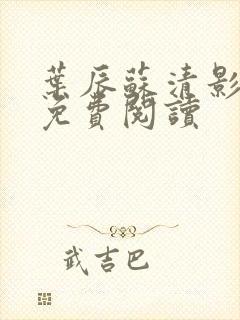 葉辰蘇清影
免費閱讀
武吉巴